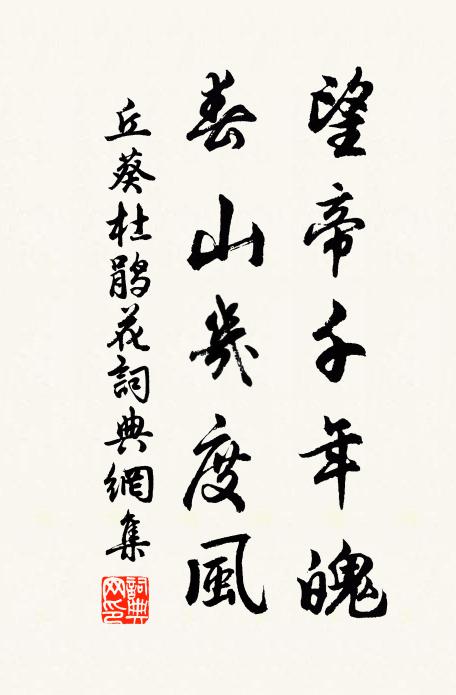 望帝千年魄
春山幾度風
丘葵杜鵑花詞典網集
詞典網印